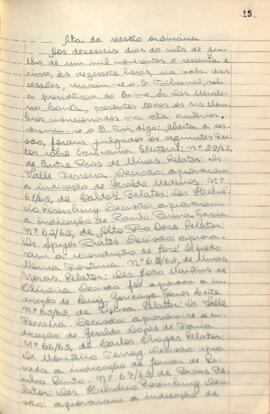 15
Ata da sessão ordinária
Aos dezesseis dias do mês de ju-
lho de um mil novecentos e sessenta e
cinco, às dezessete horas, na sala das
sessões, reuniu-se o E. Tribunal, sob
a presidência do Exmo. Sr. Des.
presentes todos os srs. Mem-
bros mencionados na ata anterior,
e o Dr. digo: Aberta a ses-
são, foram julgados os seguintes fei-
tos sobre Escrivão Eleitoral: nº 59/65,
de Minas. Relator: Des.
Valle Ferreira. Decisão: aprovaram
a indicação de Geraldo Medeiros. Nº
61/65, de Caldas. Relator: Des. Helvé-
cio Rosenburg. Decisão: aprovaram
a indicação de Paulo Garcia.
Nº 62/65, de Alto Rio Doce. Relator:
Dr. Prates. Decisão: aprova-
ram a recondução de José Alfredo
Moura Nº 63/65, de Minas
Novas. Relator: Des. João Martins de
Oliveira. Decisão: foi aprovada a in-
dicação de Luiz Gonzaga Leite.
Nº 65/65, de Relator: Des. Valle
Ferreira. Decisão: aprovaram a in-
dicação de Geraldo Lopes de Faria.
Nº 66/65, de Carlos Chagas. Relator:
Dr. Monteiro Ferraz. Decisão: apro-
vada a indicação de de Pe-
Nº 67/65, de Relator:
Des. Helvécio Rosenburg. Deci-
são: aprovaram a indicação de